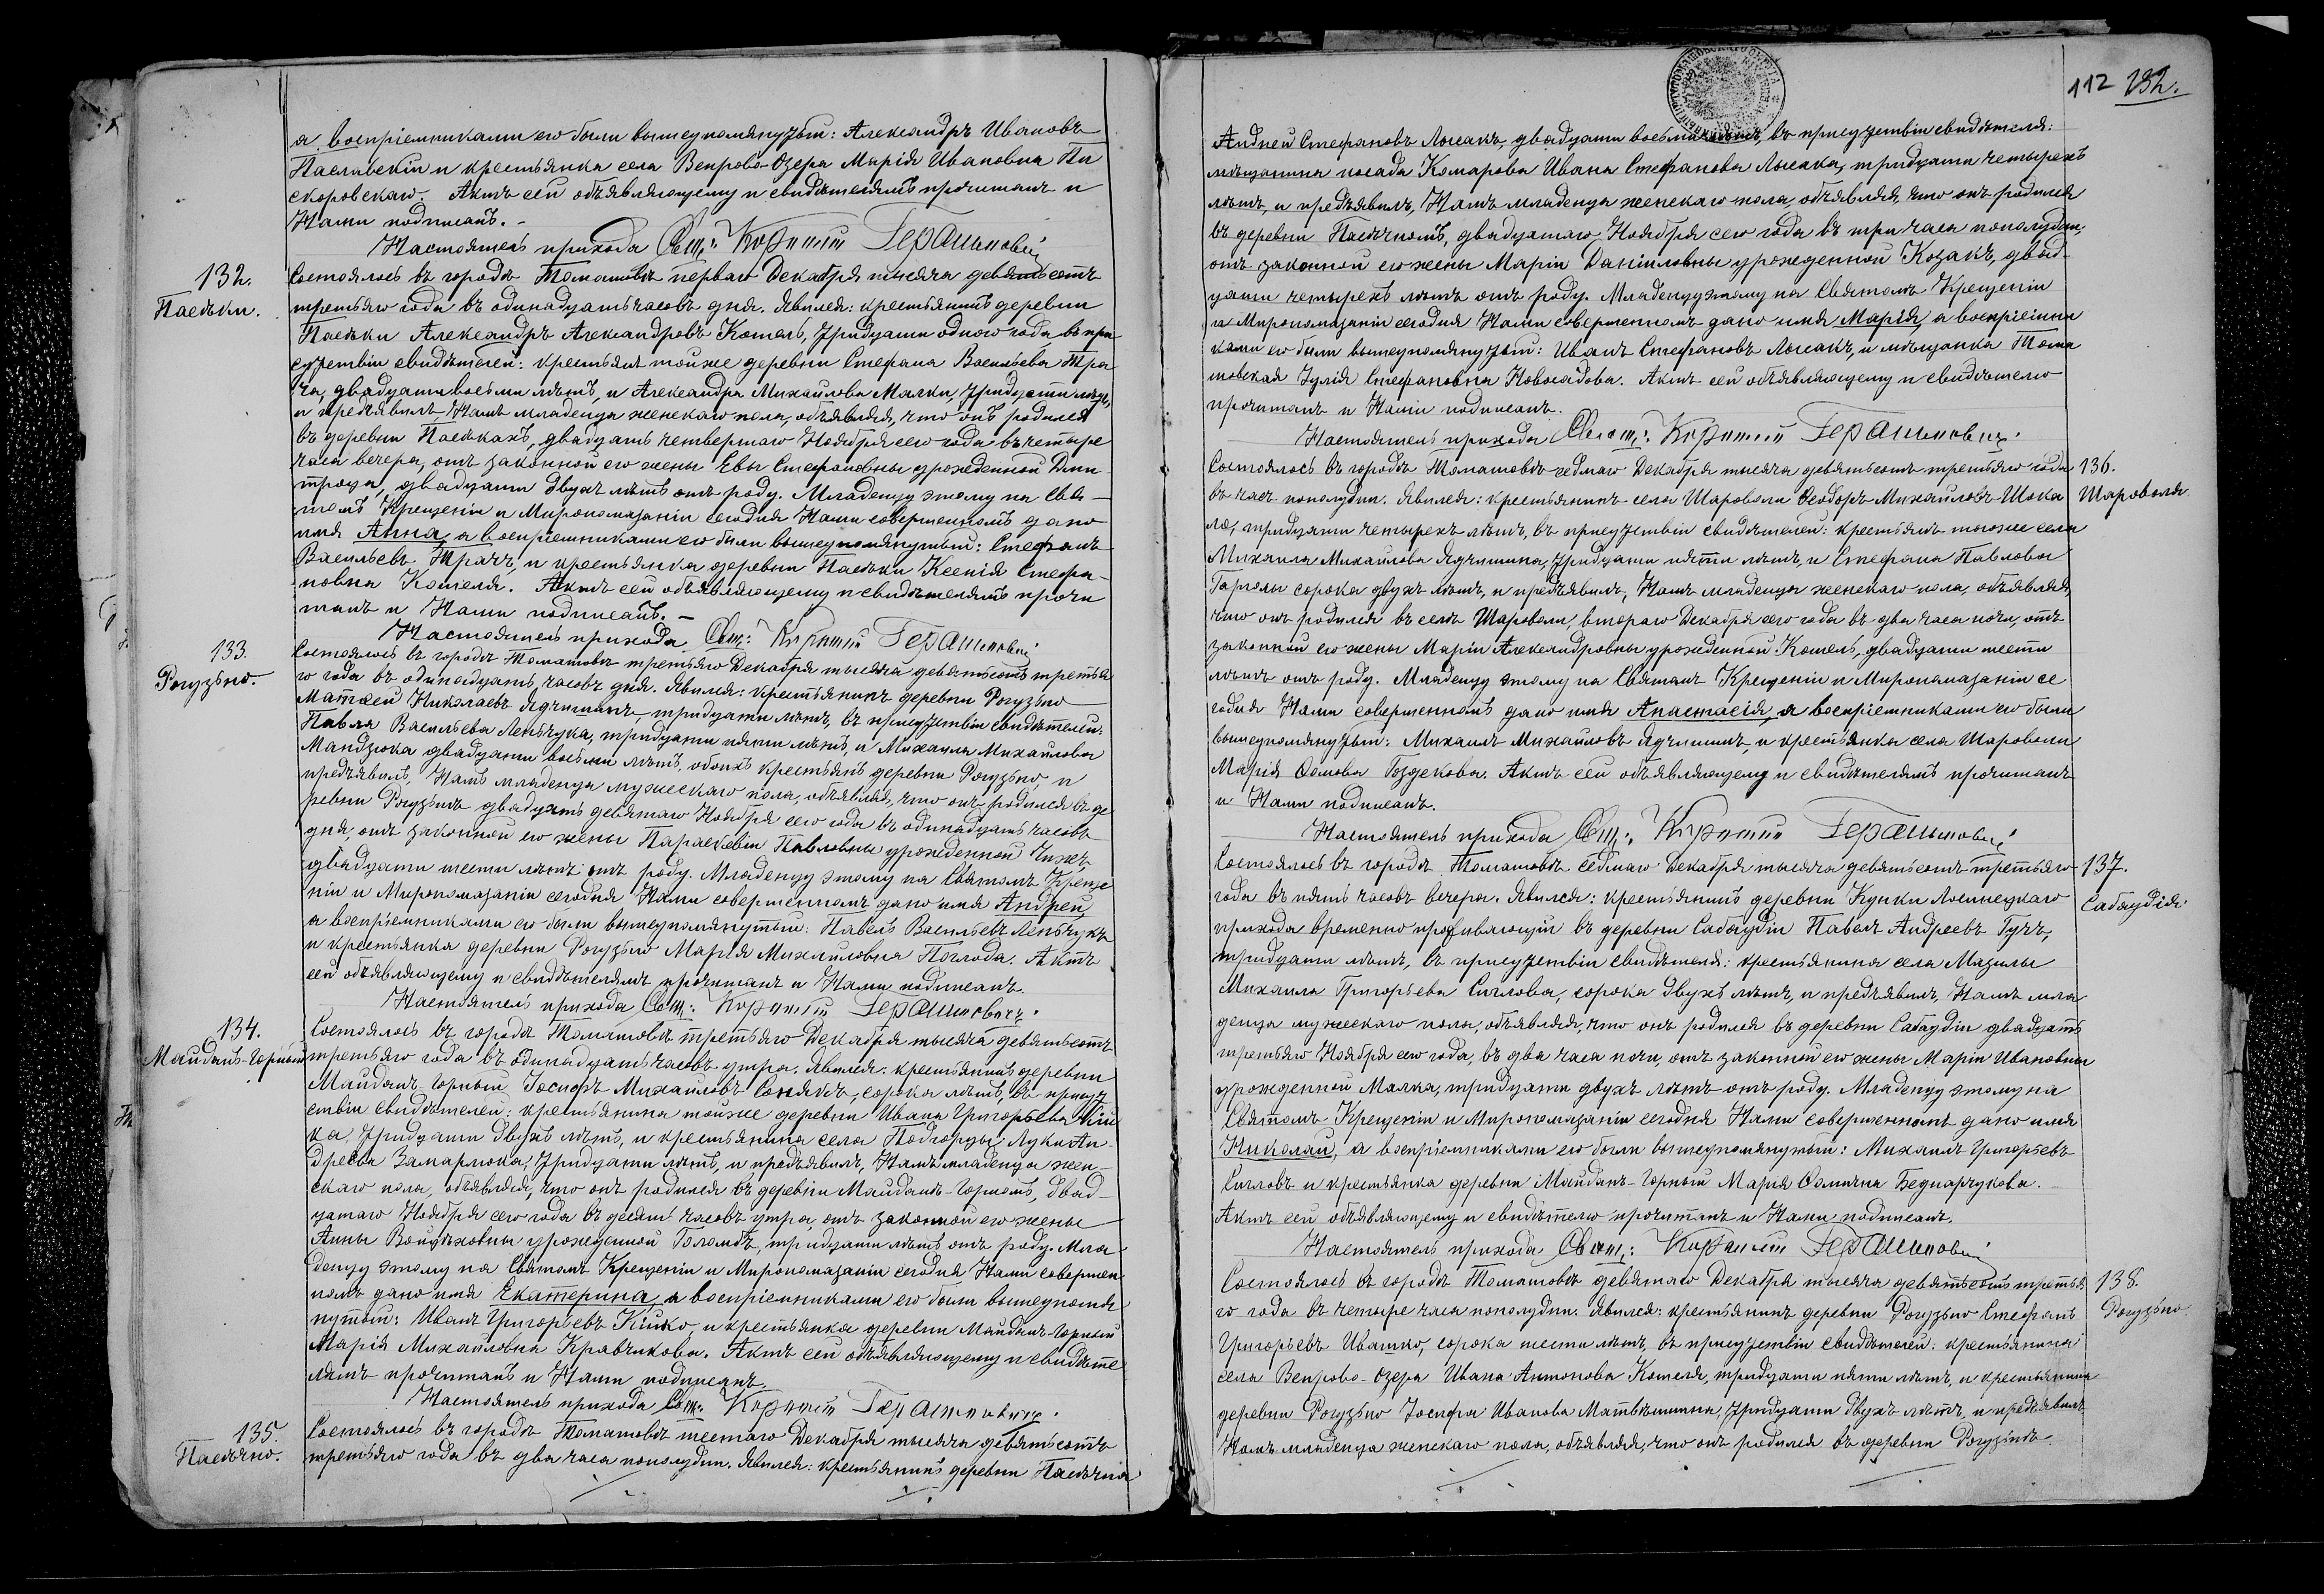 а воспріемниками его были вышеупомянутый: Александръ Ивановъ
Паславскій и крестьянка села Вепрово-Озера Марія Ивановна Пи
скоровская. Актъ сей объявляющему и свидѣтелямъ прочитанъ и
Нами подписанъ. -
Настоятель прихода Свящ: Корнилій Герасимовичъ
132.
Пасѣки.
Состоялось въ городѣ Томашовѣ перваго Декабря тысяча девятьсотъ
третьяго года въ одинадцать часовъ дня. Явился: крестьянинъ деревни
Пасѣки Александръ Александровъ Котель, тридцати одного года въ при
сутствіи свидѣтелей: крестьянъ тойже деревни Стефана Васильева Тра
ча, двадцати восьми лѣтъ, и Александра Михайлова Малки, тридцати лѣтъ,
и предъявилъ Намъ младенца женскаго пола, объявляя, что онъ родился
въ деревни Пасѣкахъ, двадцать четвертаго Ноября сего года въ четыре
часа вечера, отъ законной его жены Евы Стефановны урожденной Дми
троца, двадцати двухъ лѣтъ отъ роду. Младенцу этому на Свя-
томъ Крещеніи и Миропомазаніи сегодня Нами совершенномъ дано
имя Анна, а воспріемниками его были вышеупомянутый: Стефанъ
Васильевъ Трачъ, и крестьянка деревни Пасѣки Ксенія Стефа-
новна Котеля. Актъ сей объявляющему и свидѣтелямъ прочи
танъ и Нами подписанъ. -
Настоятель прихода Свящ: Корнилій Герасимовичъ
133.
Рогузьно.
Состоялось въ городѣ Томашовѣ третьяго Декабря тысяча девятьсотъ третья
го года въ одинадцать часовъ дня. Явился: крестьянинъ деревни Рогузьно
Матѳей Николаевъ Ядчишинъ, тридцати лѣтъ, въ присутствіи свидѣтелей:
Павла Васильева Леньчука, тридцати пяти лѣтъ, и Михаила Михайлова
Мандзюка двадцати восьми лѣтъ, обоихъ крестьянъ деревни Рогузьно, и
предъявилъ Намъ младенца мужескаго пола, объявляя, что онъ родился въ де
ревни Рогузьнѣ двадцать девятаго Ноября сего года въ одинадцать часовъ
дня, отъ законной его жены Параскевіи Павловны урожденной Чижъ,
двадцати шести лѣтъ отъ роду. Младенцу этому на Святомъ Креще
ніи и Миропомазаніи сегодня Нами совершенномъ дано имя Андрей,
а воспріемниками его были вышеупомянутый: Павелъ Васильевъ Леньчукъ
и крестьянка деревни Рогузьно Марія Михайловна Поглода. Актъ
сей объявляющему и свидѣтелямъ прочитанъ и Нами подписанъ.
Настоятель прихода Свящ: Корнилій Герасимовичъ.
134.
Майданъ-Горный
Состоялось въ городѣ Томашовѣ третьяго Декабря тысяча девятьсотъ
третьяго года въ одинадцать часовъ утра. Явился: крестьянинъ деревни
Майданъ-Горный Іосифъ Михайловъ Сонякъ, сорока лѣтъ, въ присут
ствіи свидѣтелей: крестьянина тойже деревни Ивана Григорьева Кій
ка, тридцати двухъ лѣтъ, и крестьянина села Подгорцы Луки Ан-
дреева Замарлюка, тридцати лѣтъ, и предъявилъ Намъ младенца жен-
скаго пола, объявляя, что онъ родился въ деревни Майданъ-Горномъ, двад-
цатаго Ноября сего года въ десять часовъ утра отъ законной его жены
Анны Войцѣховны урожденной Голомбъ, тридцати лѣтъ отъ роду. Мла
денцу этому на Святомъ Крещеніи и Миропомазаніи сегодня Нами совершен
номъ дано имя Екатерина, а воспріемниками его были вышеупомя
нутый: Иванъ Григорьевъ Кійко и крестьянка деревни Майданъ-Горный
Марія Михайловна Кравчикова. Актъ сей объявляющему и свидѣте
лямъ прочитанъ и Нами подписанъ.
Настоятель прихода Свящ: Корнилій Герасимовичъ.
135.
Пасѣчно.
Состоялось въ городѣ Томашовѣ шестаго Декабря тысяча девятьсотъ
третьяго года въ два часа пополудни. Явился: крестьянинъ деревни Пасѣчно
112 132.
Андрей Стефановъ Лысакъ, двадцати восьми лѣтъ, въ присутствіи свидѣтеля:
мѣщанина посада Комарова Ивана Стефанова Лысака, тридцати четырехъ
лѣтъ, и предъявилъ Намъ младенца женскаго пола, объявляя, что онъ родился
въ деревни Пасѣчномъ, двадцатаго Ноября сего года въ три часа пополудни,
отъ законной его жены Маріи Даніиловны урожденной Козакъ, двад-
цати четырехъ лѣтъ отъ роду. Младенцу этому на Святомъ Крещеніи
и Миропомазаніи сегодня Нами совершенномъ дано имя Марія, а воспріемни
ками его были вышеупомянутый: Иванъ Стефановъ Лысакъ, и мѣщанка Тома
шовская Іулія Стефановна Новосадова. Актъ сей объявляющему и свидѣтелю
прочитанъ и Нами подписанъ.
Настоятель прихода Свящ: Корнилій Герасимовичъ.
136.
Шароволя.
Состоялось въ городѣ Томашовѣ седмаго Декабря тысяча девятьсотъ третьяго года
въ часъ пополудни. Явился: крестьянинъ села Шароволи Ѳеодоръ Михайловъ Шока
ло, тридцати четырехъ лѣтъ, въ присутствіи свидѣтелей: крестьянъ тогоже села
Михаила Михайлова Ядчишина, тридцати пяти лѣтъ, и Стефана Павлова
Гарголы сорока двухъ лѣтъ, и предъявилъ Намъ младенца женскаго пола, объявляя,
что онъ родился въ селѣ Шароволи, втораго Декабря сего года въ два часа ночи, отъ
законной его жены Маріи Александровны урожденной Котель, двадцати шести
лѣтъ отъ роду. Младенцу этому на Святомъ Крещеніи и Миропомазаніи се
годня Нами совершенномъ дано имя Анастасія, а воспріемниками его были
вышеупомянутый: Михаилъ Михайловъ Ядчишинъ, и крестьянка села Шароволи
Марія Ѳомова Гоздекова. Актъ сей объявляющему и свидѣтелямъ прочитанъ
и Нами подписанъ.
Настоятель прихода Свящ: Корнилій Герасимовичъ
137.
Сабаудія.
Состоялось въ городѣ Томашовѣ седмаго Декабря тысяча девятьсотъ третьяго
года въ пять часовъ вечера. Явился: крестьянинъ деревни Кунки Лосинецкаго
прихода временно проживающій въ деревни Сабаудіи Павелъ Андреевъ Гучъ,
тридцати лѣтъ, въ присутствіи свидѣтеля: крестьянина села Мазилы
Михаила Григорьева Сичлова, сорока двухъ лѣтъ, и предъявилъ Намъ мла
денца мужескаго пола, объявляя, что онъ родился въ деревни Сабаудіи двадцать
третьяго Ноября сего года, въ два часа ночи, отъ законной его жены Маріи Ивановны
урожденной Малка, тридцати двухъ лѣтъ отъ роду. Младенцу этому на
Святомъ Крещеніи и Миропомазаніи сегодня Нами совершенномъ дано имя
Николай, а воспріемниками его были вышеупомянутый: Михаилъ Григорьевъ
Сичловъ и крестьянка деревни Майданъ-Горный Марія Ѳомична Беднарчукова.
Актъ сей объявляющему и свидѣтелю прочитанъ и Нами подписанъ.
Настоятель прихода Свящ: Корнилій Герасимовичъ
138.
Рогузьно.
Состоялось въ городѣ Томашовѣ девятаго Декабря тысяча девятьсотъ третья
го года въ четыре часа пополудни. Явился: крестьянинъ деревни Рогузьно Стефанъ
Григорьевъ Ивашко, сорока шести лѣтъ, въ присутствіи свидѣтелей: крестьянина
села Вепрово-Озера Ивана Антонова Котеля, тридцати пяти лѣтъ, и крестьянина
деревни Рогузьно Іосифа Иванова Матвѣишина, тридцати двухъ лѣтъ, и предъявилъ
Намъ младенца женскаго пола, объявляя, что онъ родился въ деревни Рогузьнѣ